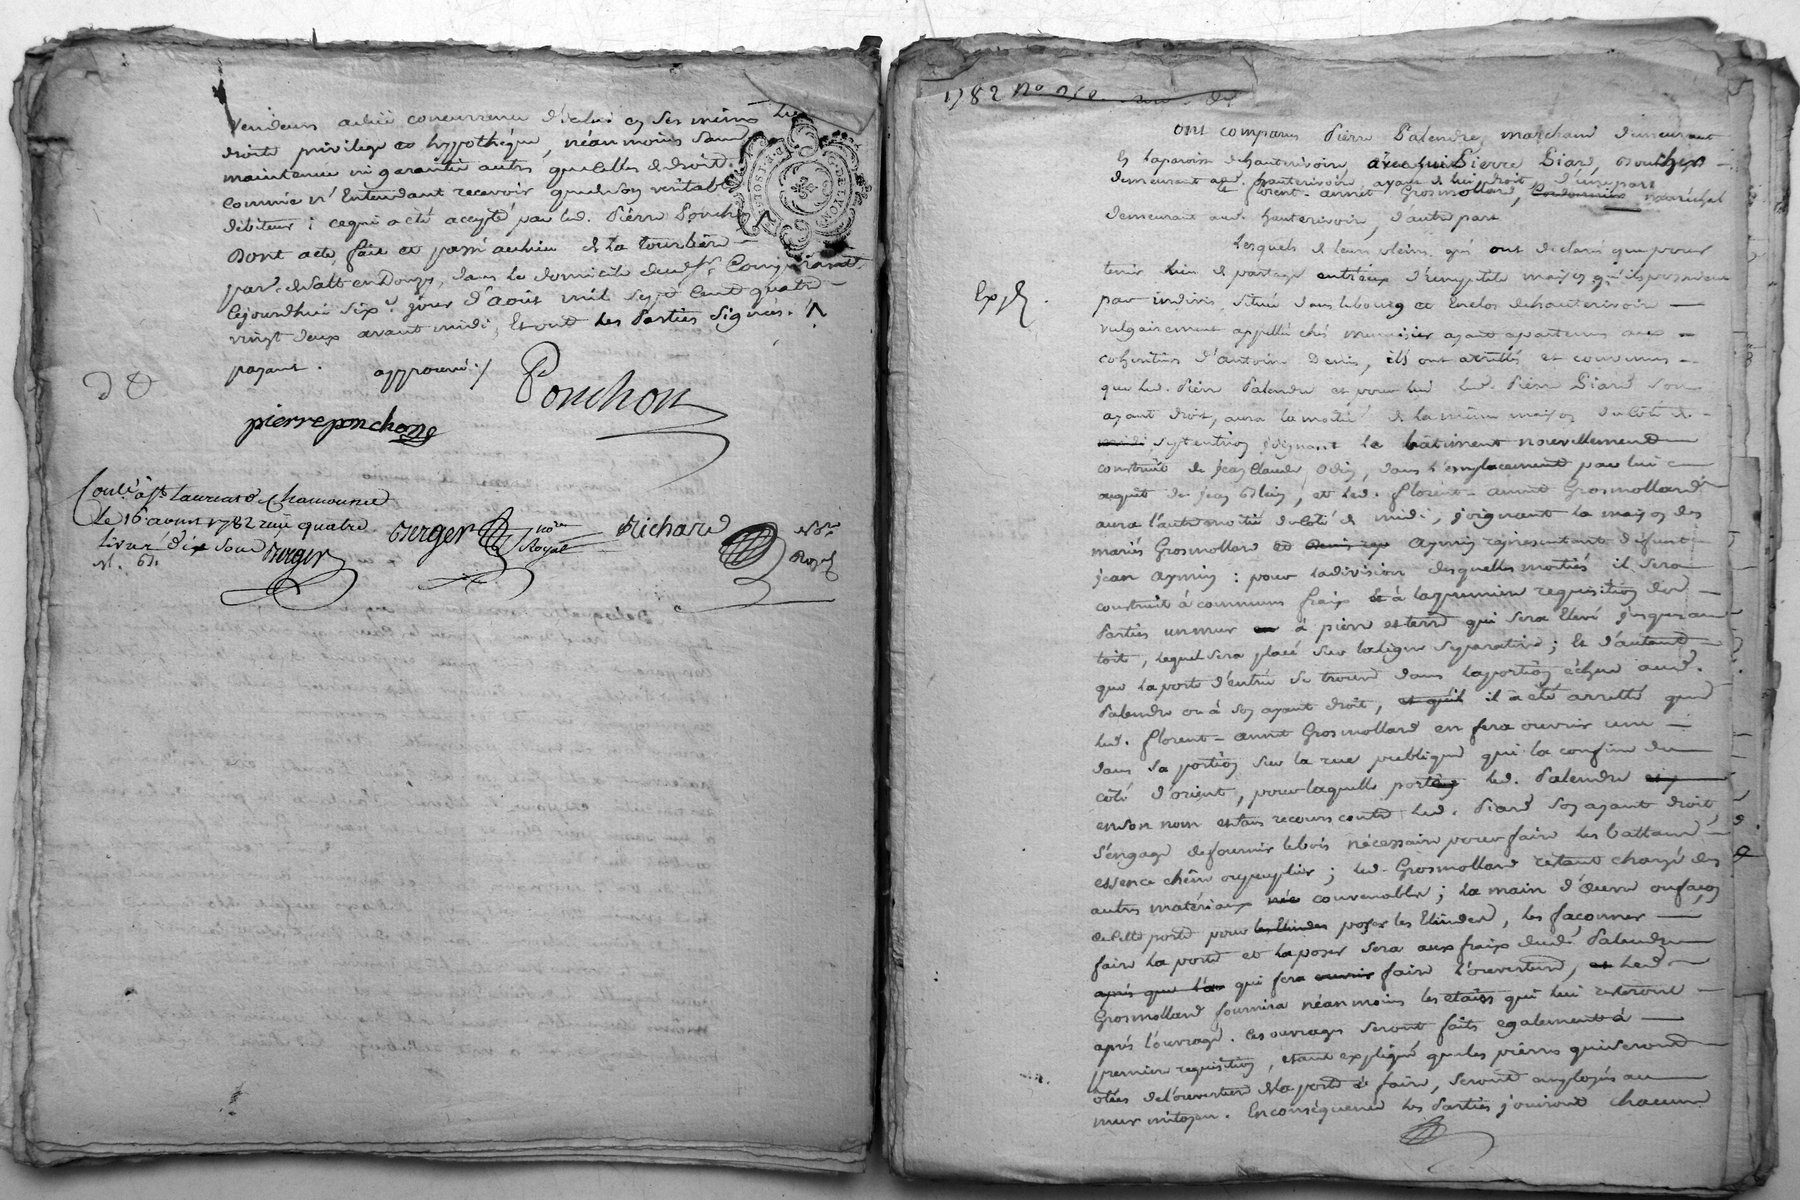 vendeurs a duë concurrence d'iceluy en ses mains les
droits privilege et hypothéque, néanmoins sans
maintenue ni garantie autre que celles de droit
comme n'Entendant recevoir que de son veritable
débiteur ; ce qui a été accepté par led. Pierre Ponchon
Dont acte, fait et passé au lieu de la tourbière
par. de Salt en Donzy, dans le domicile dud. Sr. Comparant
Cejourdhui six.e jour d'aoust mil sept cent quatre
vingt deux avant midi, Et ont les Parties signées. /
payant. approuvé ./
Ponchon
pierre ponchon
Conlé à St. Laurent de Chamousset
Le 16 aoust 1782 reçu quatre
livres dix sous Berger
Berger no.re Royal
Richard no.re Roy.l
DE LYON
1782 No
Ont comparus Pierre Palendre, marchand demeurant
en la paroisse de hauterivoire avec lui Pierre Piard, Boucher
demeurant aud. hauterivoire, ayant de lui droit, d'une part
et florent-annet Grosmollard, Cordonnier maréchal
demeurant aud. hauterivoire, d'autre part
Lesquels de leurs pleins grés ont declaré que pour
tenir lieu de partage entr'eux d'une petite maison qu'ils possedent
par indivis, située dans le bourg et Enclos de hauterivoire
Exp.d
vulgairement appellée chés menuisier ayant apartenu aux
cohéritiers d'antoine Denis, ils ont arrettés et convenus
que led. Pierre Palendre et pour lui led. Pierre Piard son
ayant droit, aura la moitié de la même maison du côté de
midi, septentrion joignant le bâtiment nouvellement
construit de Jean Claude Odin, dans l'emplacement par lui
acquêt de Jean Blein, et led. florent-annet Grosmollard
aura l'autre moitié du côté de midi, joignant la maison des
mariés Grosmollard et Aymin représentant defunt
jean aymin : pour la division desquelles moitiés il sera
construit à communs fraix et à la premiere requisition des
Parties un mur à pierre et terre qui sera Elevé jusques au
toit, lequel sera placé sur la ligne séparative ; Et d'autant
que la porte d'entrée se trouve dans la portion échue aud.
Palendre ou à son ayant droit, et qu'il il a été arretté que
led. florent-annet Grosmollard en fera ouvrir une
dans sa portion sur la rue publique qui la confine du
côté d'orient, pour laquelle porte led. Palendre
en son nom et sans recours contre led. Piard son ayant droit
s'engage de fournir le bois nécessaire pour faire les battans
essence chêne ou peuplier ; led. Grosmollard restant chargé des
autres matériaux convenable ; la main d'œuvre ou façon
de cette porte pour les Elindes poser les Elindes, les façonner
faire la porte et la poser sera aux fraix dud. Palendre
après que l'a qui fera ouvrir faire l'ouverture, et led.
Grosmollard fournira néanmoins les etaies qui lui resteront
après l'ouvrage. Ces ouvrages seront faits egalement à
premiere requisition, etant expliqué que les pierres qui seront
otées de l'ouverture de la porte à faire, seront employés au
mur mitoyen. En conséquence les Parties jouiront chacune